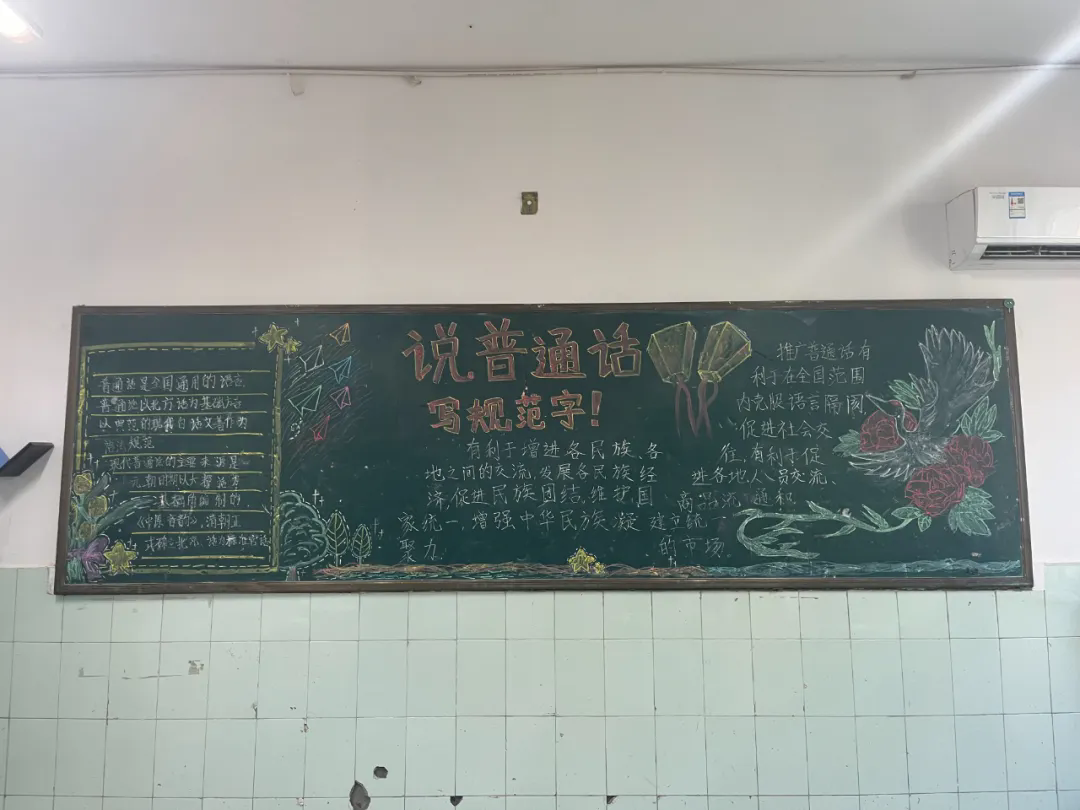 说普通话
写规范字！
普通话是全国通用的语言
普通话以北方话为基础方言
以典范的现代白话文著作为
语法规范
现代普通话的主要来源是
元朝时期以大都话为
基础而编制的
《中原音韵》，清朝正
有利于增进各民族、各
地之间的交流，发展各民族经
济，促进民族团结，维护国
家统一，增强中华民族凝
聚力
推广普通话有
利于在全国范围
内克服语言隔阂
促进社会交
往，有利于促
进各地人员交流、
商品流通和
建立统一
的市场